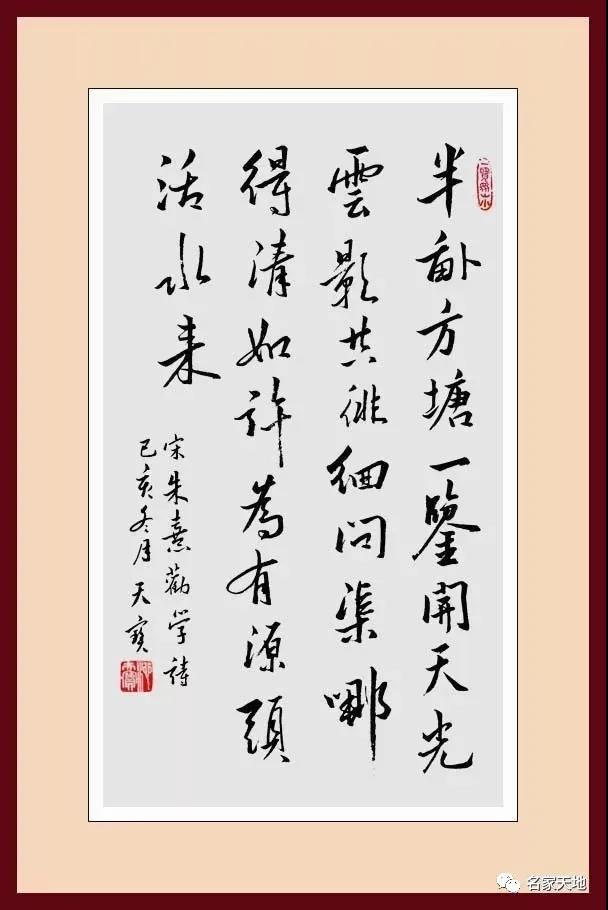 半畝方塘一鑒開天光
雲影共徘徊問渠哪
得清如許為有源頭
活水來
宋朱熹勸學詩
己亥冬月天寶
名家天地